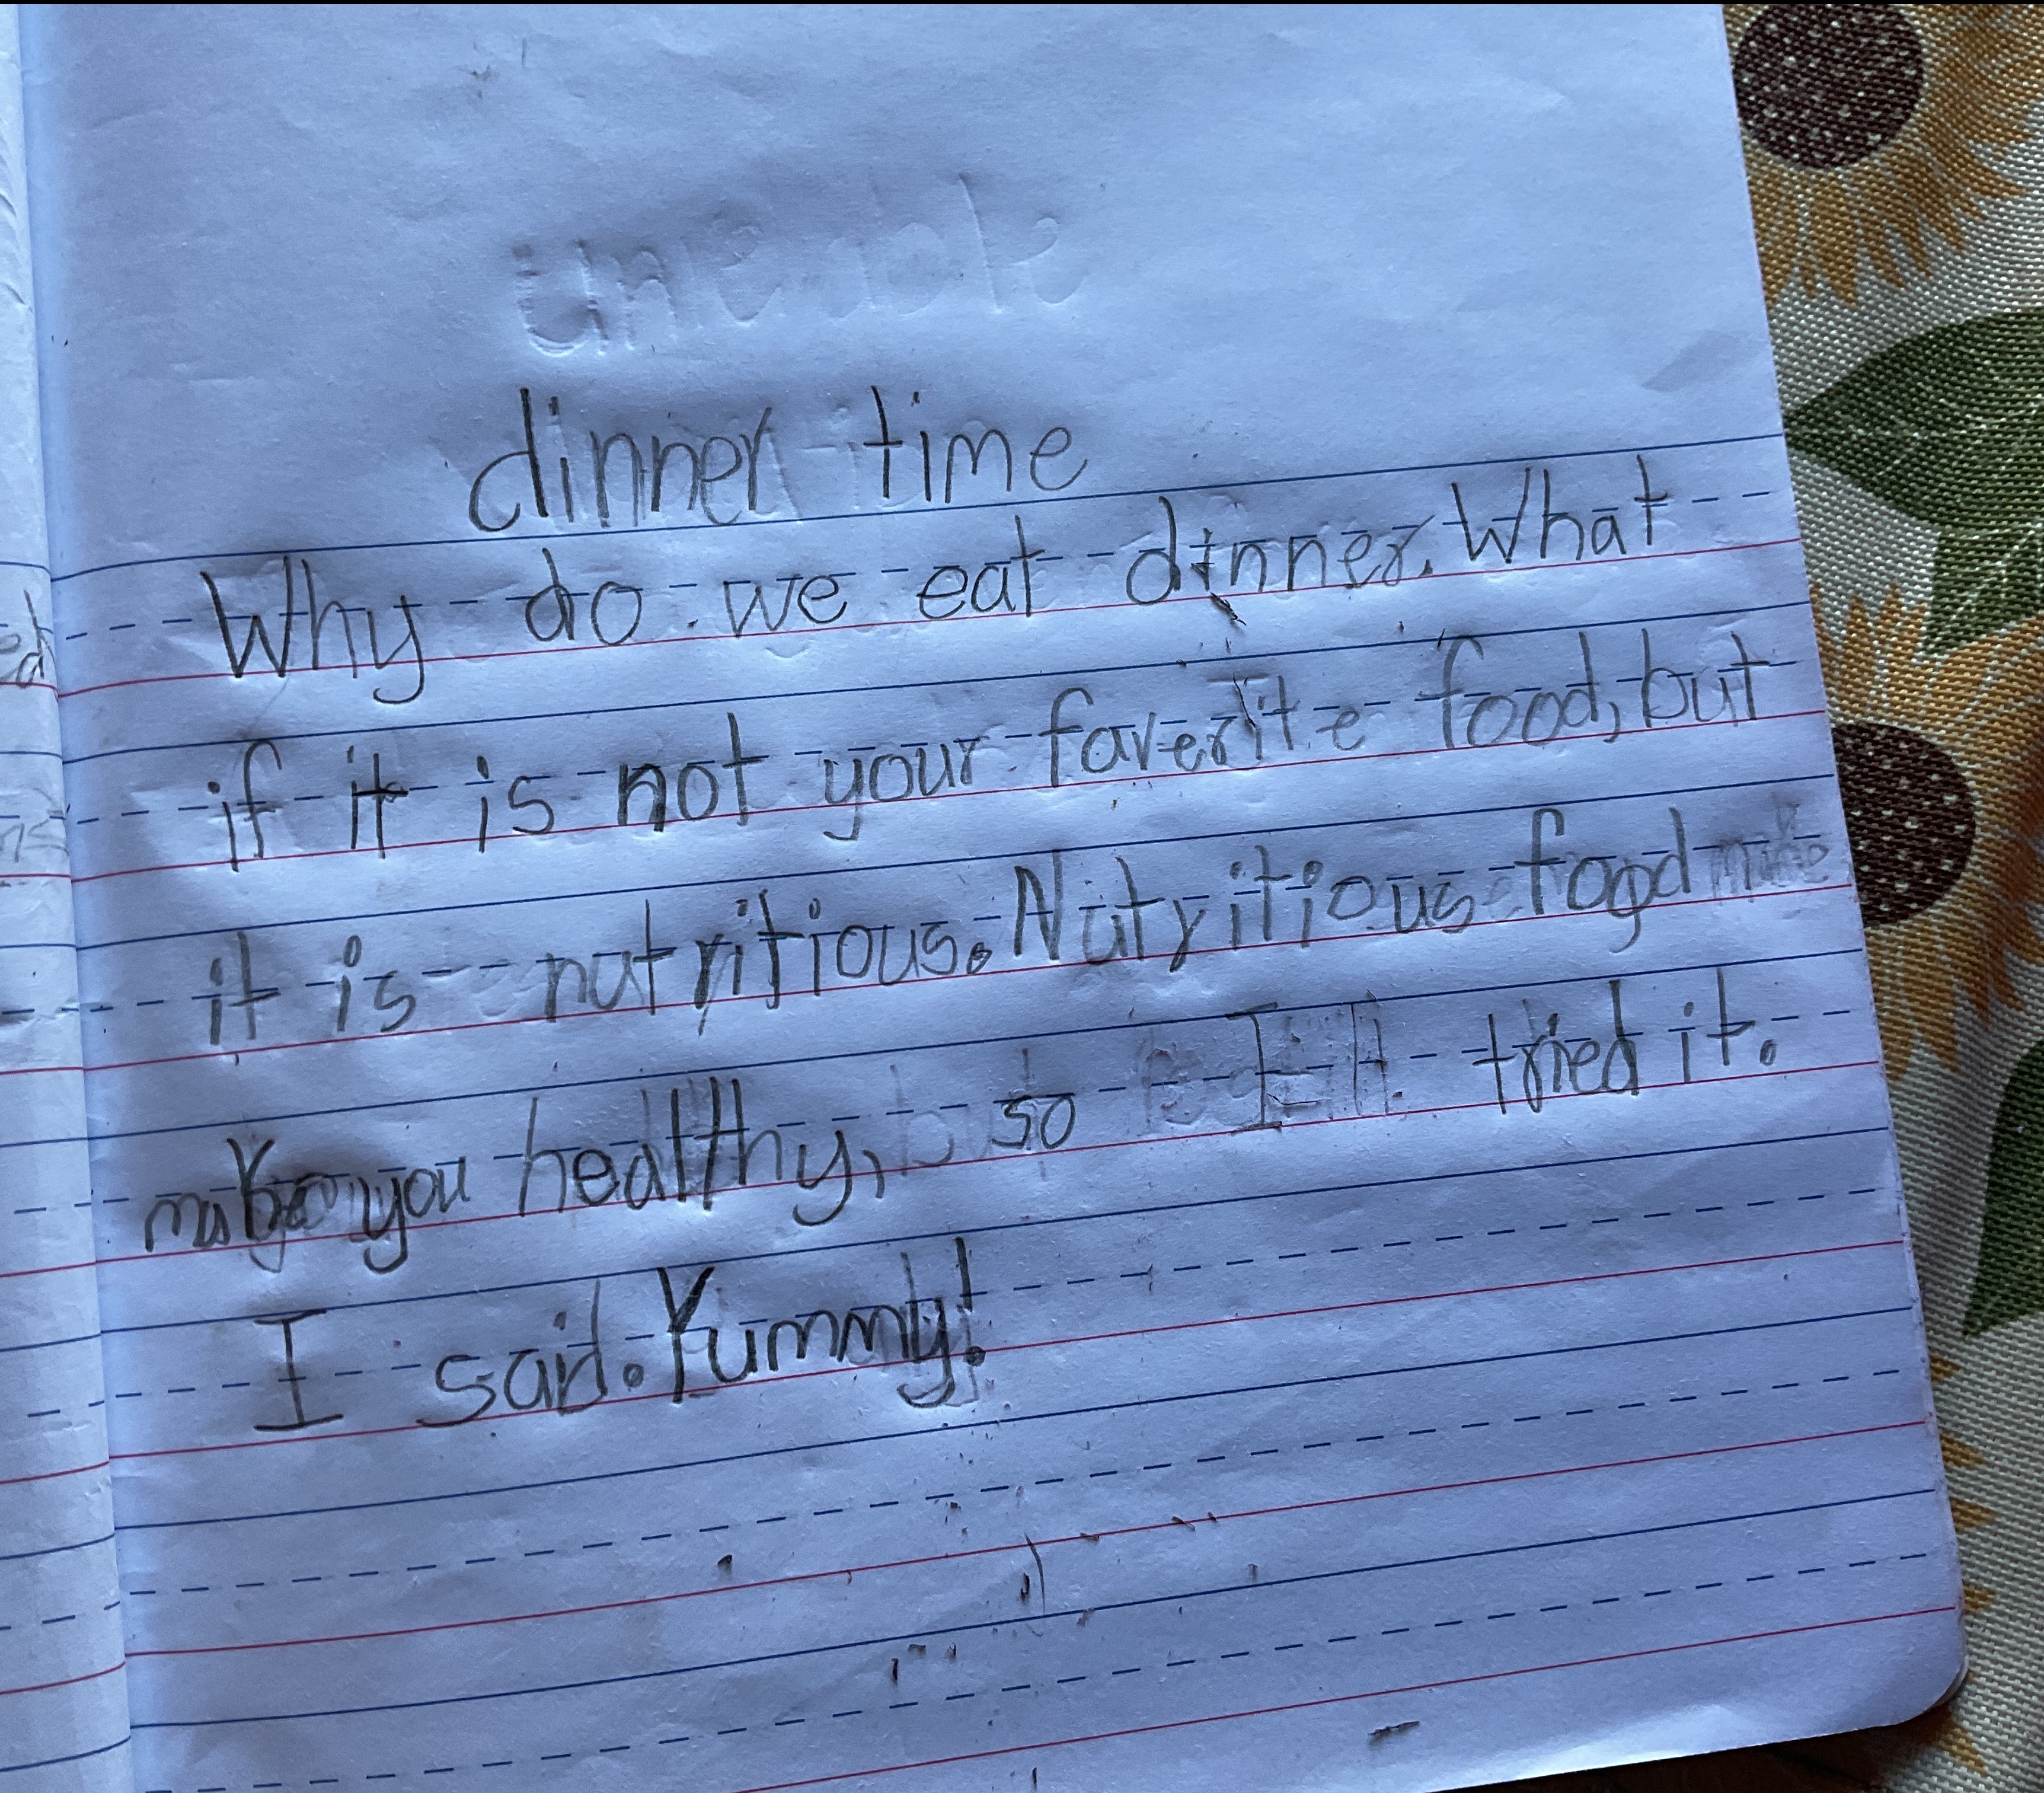 dinner time
Why do we eat dinner. What
if it is not your faverite food, but
it is nutritious. Nutritious food
make you healthy, so I tried it.
I said. Yummy!